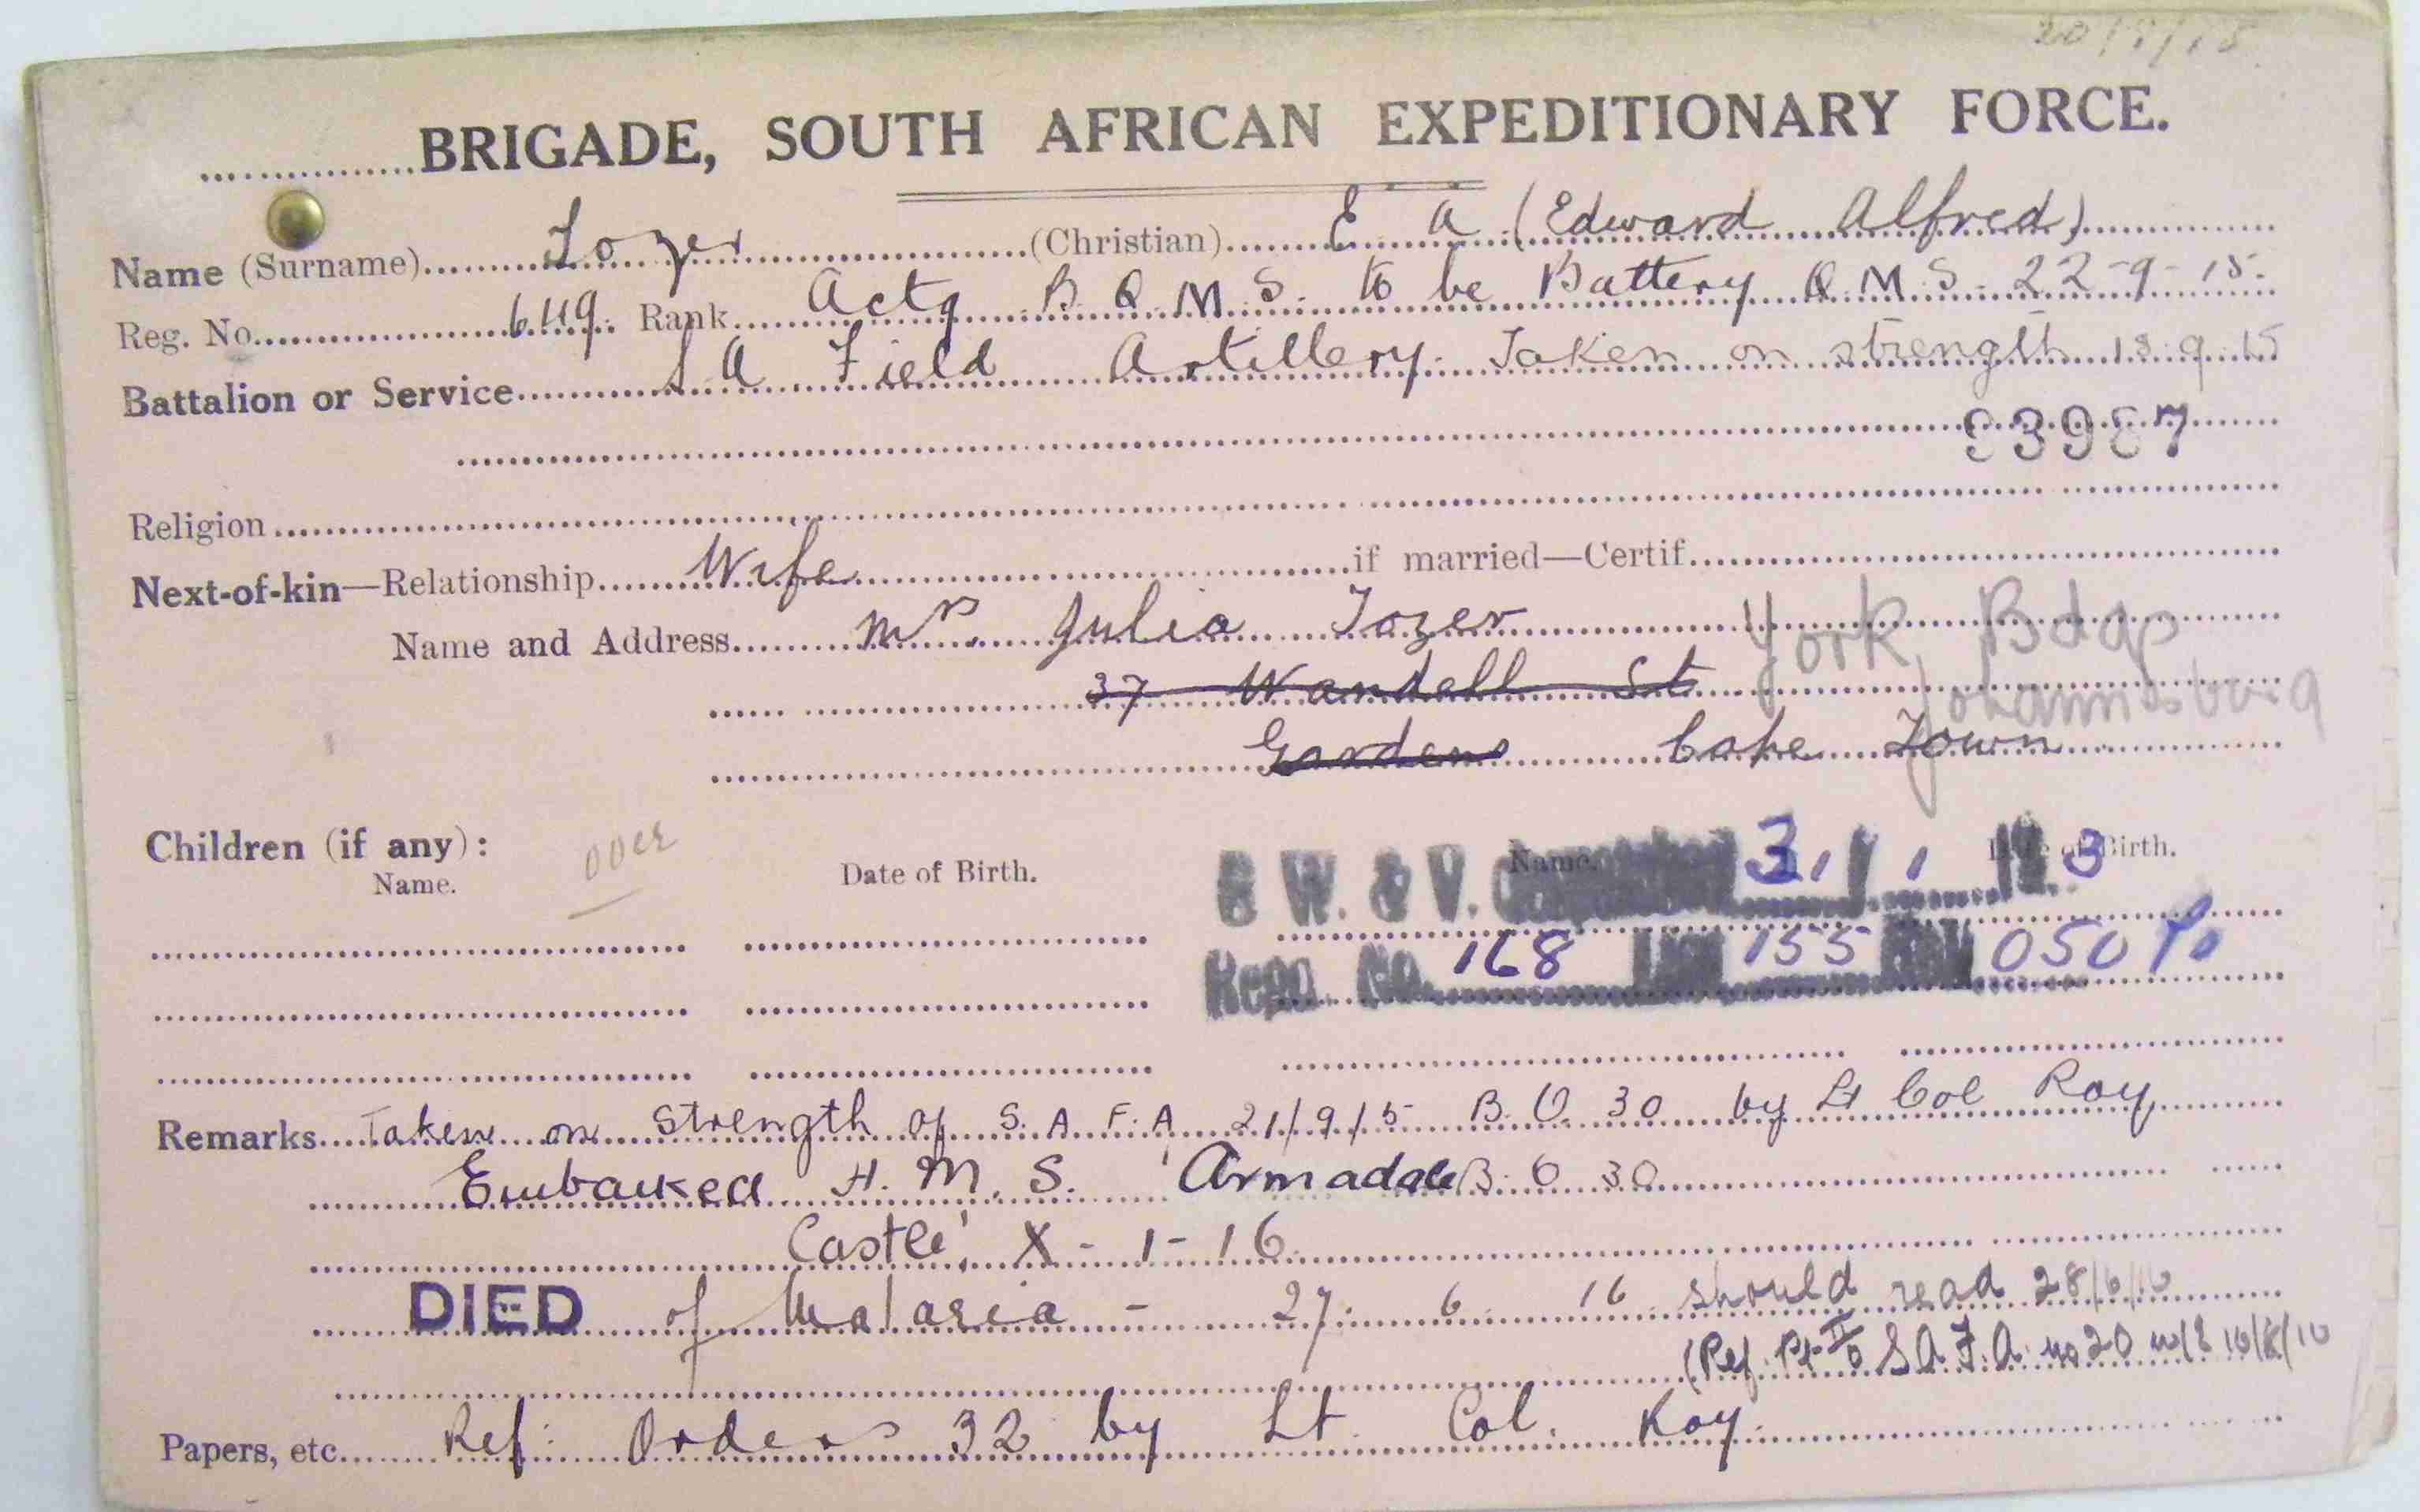 20/9/15
BRIGADE, SOUTH AFRICAN EXPEDITIONARY FORCE.
Name (Surname) Tozer (Christian) E A (Edward Alfred)
Reg. No. 649. Rank Actg B.Q.M.S. to be Battery Q.M.S. 22-9-15.
Battalion or Service S A Field Artillery. Taken on strength 18.9.15
Religion
Next-of-kin—Relationship Wife if married—Certif.
Name and Address Mrs. Julia Tozer York Bdgs
37 Wandell St Johannesburg
Gardens Cape Town
Children (if any): over
Name. Date of Birth. Name. Date of Birth.
W. & V. 3
Regn. No. 168 155 050
Remarks Taken on Strength of S.A.F.A 21/9/15 B.O. 30 by Lt Col Roy
Embarked H.M.S. 'Armadale B.O 30
Castle', X-1-16
DIED of Malaria - 27. 6. 16 should read 28/6/16
(Ref. Pt II O S.A.F.A. no 20
Papers, etc. Ref: Orders 32 by Lt Col. Roy.